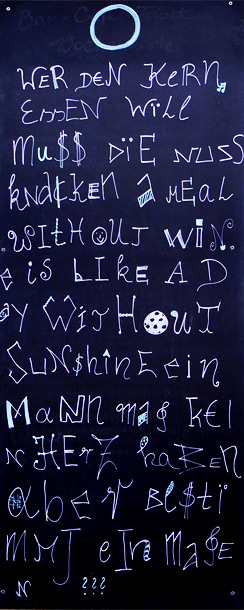 WER DEN KERN,
ESSEN Will
MU$$ DIE NUSS
KNACKEN A MEAL
WITHOUT WIN
e is LIKE A D
ay WITHOUT
SUN$hinE Ein
MANN mag KEI
N HERZ haBEN
aber BE$ti
MMT ein MAGE
N ???